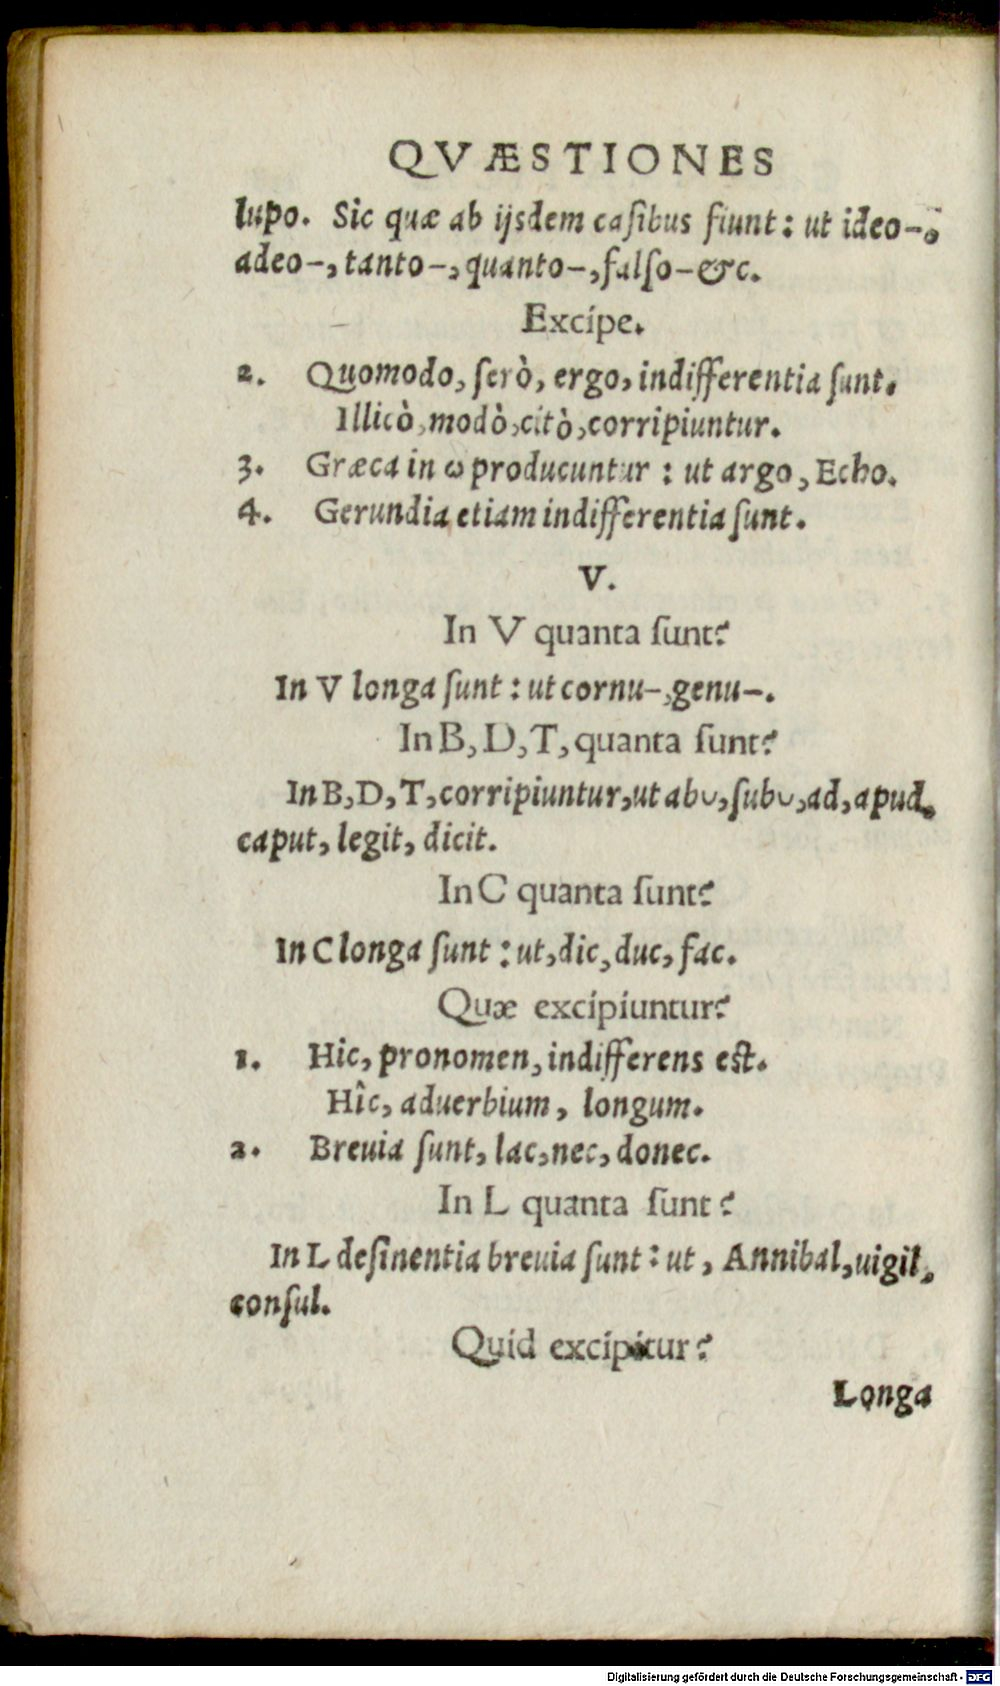 QVÆSTIONES
lupo. Sic quæ ab ijsdem caſibus fiunt: ut ideo–,
adeo–, tanto–, quanto–, falſo– &c.
Excipe.
2. Quomodo, ſerò, ergo, indifferentia ſunt.
Illicò, modò, citò, corripiuntur.
3. Græca in ω producuntur: ut argo, Echo.
4. Gerundia etiam indifferentia ſunt.
V.
In V quanta ſunt?
In V longa ſunt: ut cornu–, genu–.
In B, D, T, quanta ſunt?
In B, D, T, corripiuntur, ut ab◡, ſub◡, ad, apud,
caput, legit, dicit.
In C quanta ſunt?
In C longa ſunt: ut, dic, duc, fac.
Quæ excipiuntur?
1. Hic, pronomen, indifferens eſt.
Hîc, aduerbium, longum.
2. Breuia ſunt, lac, nec, donec.
In L quanta ſunt?
In L deſinentia breuia ſunt: ut, Annibal, uigil,
conſul.
Quid excipitur?
Longa
Digitalisierung gefördert durch die Deutsche Forschungsgemeinschaft - DFG